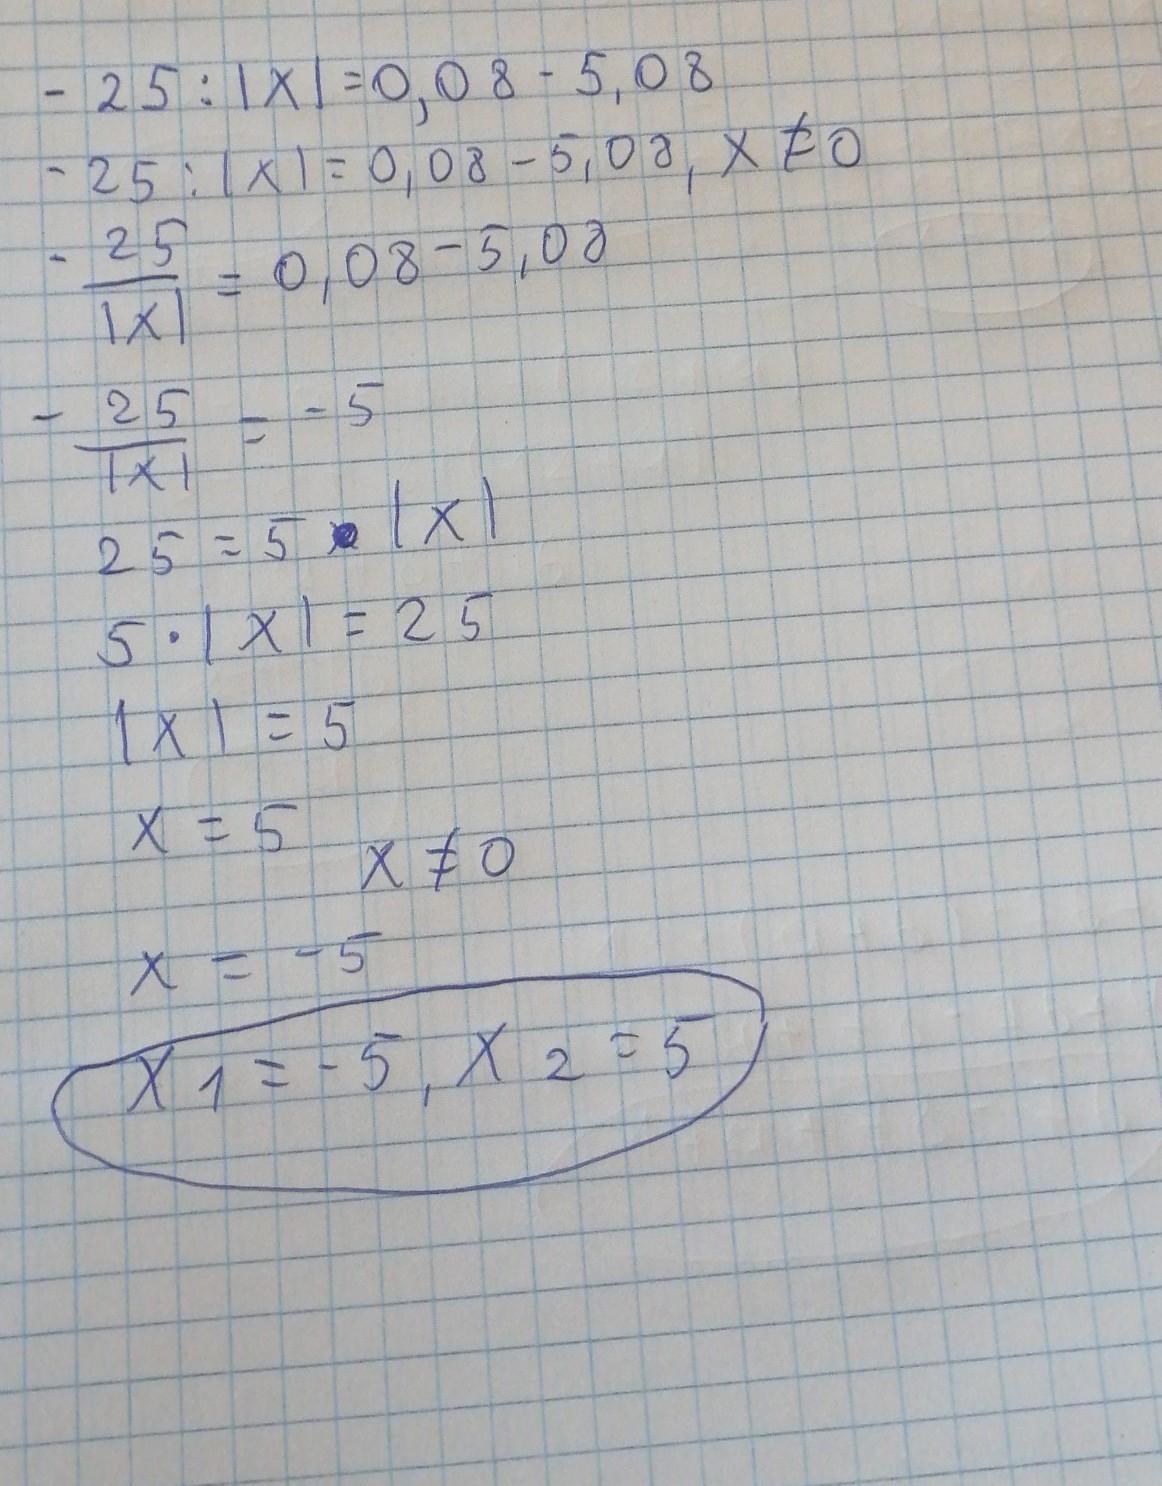 - 25 : |x| = 0,08 - 5,08
- 25 : |x| = 0,08 - 5,08, x ≠ 0
- 25/|x| = 0,08 - 5,08
- 25/|x| = -5
25 = 5 · |x|
5 · |x| = 25
|x| = 5
x = 5 x ≠ 0
x = -5
x1 = -5, x2 = 5